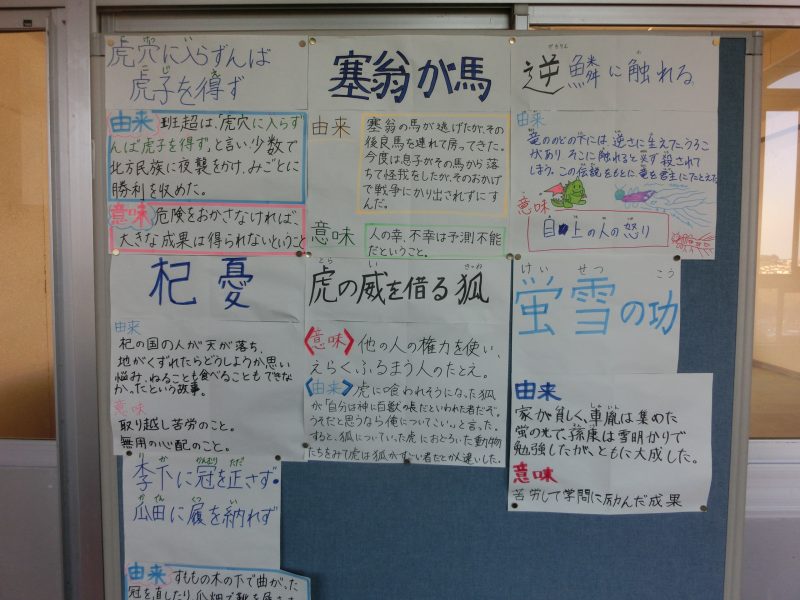 虎穴に入らずんば
虎子を得ず
由来 班超は、「虎穴に入らず
んば虎子を得ず」と言い少数で
北方民族に夜襲をかけ、みごとに
勝利を収めた。
意味 危険をおかさなければ、
大きな成果は得られないということ
塞翁が馬
由来
塞翁の馬が逃げたが、その
後良馬を連れて戻ってきた。
今度は息子がその馬から落
ちて怪我をしたが、そのおかげ
で戦争にかり出されずにす
んだ。
意味
人の幸、不幸は予測不能
だということ。
げきりん ふ
逆鱗に触れる
由来
竜ののどの下には、逆さに生えたうろこ
があり そこに触れると必ず殺されて
しまう。この伝説をもとに竜を君主にたとえた
意味
目上の人の怒り
杞憂
由来
杞の国の人が天が落ち、
地がくずれたらどうしようか思い
悩み、ねることも食べることもできな
かったという故事。
意味
取り越し苦労のこと。
無用の心配のこと。
とら い か きつね
虎の威を借る狐
意味 他の人の権力を使い、
えらくふるまう人のたとえ。
由来 虎に喰われそうになった狐
が「自分は神に百獣の長だといわれた者だぞ。
うそだと思うなら俺についてこい。」と言った。
すると、狐についていた虎におどろいた動物
たちをみて虎は狐がすごい者だとかん違いした。
けい せつ こう
蛍雪の功
由来
家が貧しく、車胤は集めた
蛍の光で、孫康は雪明かりで
勉強したが、ともに大成した。
意味
苦労して学問に励んだ成果
りか かんむり ただ
李下に冠を正さず。
かでん くつ い
瓜田に履を納れず
由来 すももの木の下で曲がった
冠を直したり、瓜畑で靴を履き